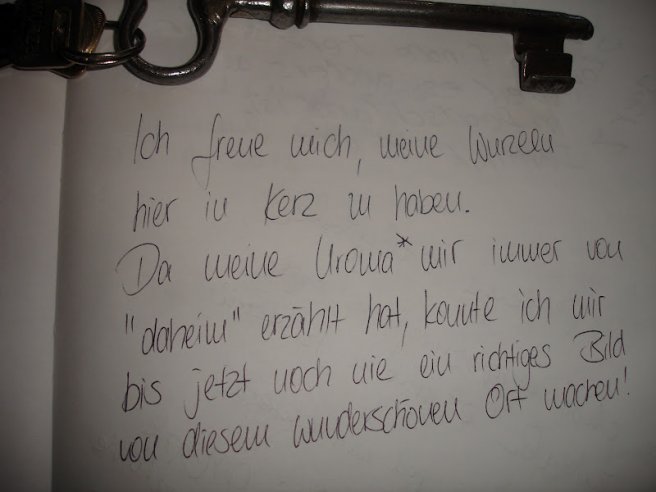 Ich freue mich, meine Wurzeln
hier in Kerz zu haben.
Da meine Uroma* mir immer von
"daheim" erzählt hat, konnte ich mir
bis jetzt noch nie ein richtiges Bild
von diesem wunderschönen Ort machen!